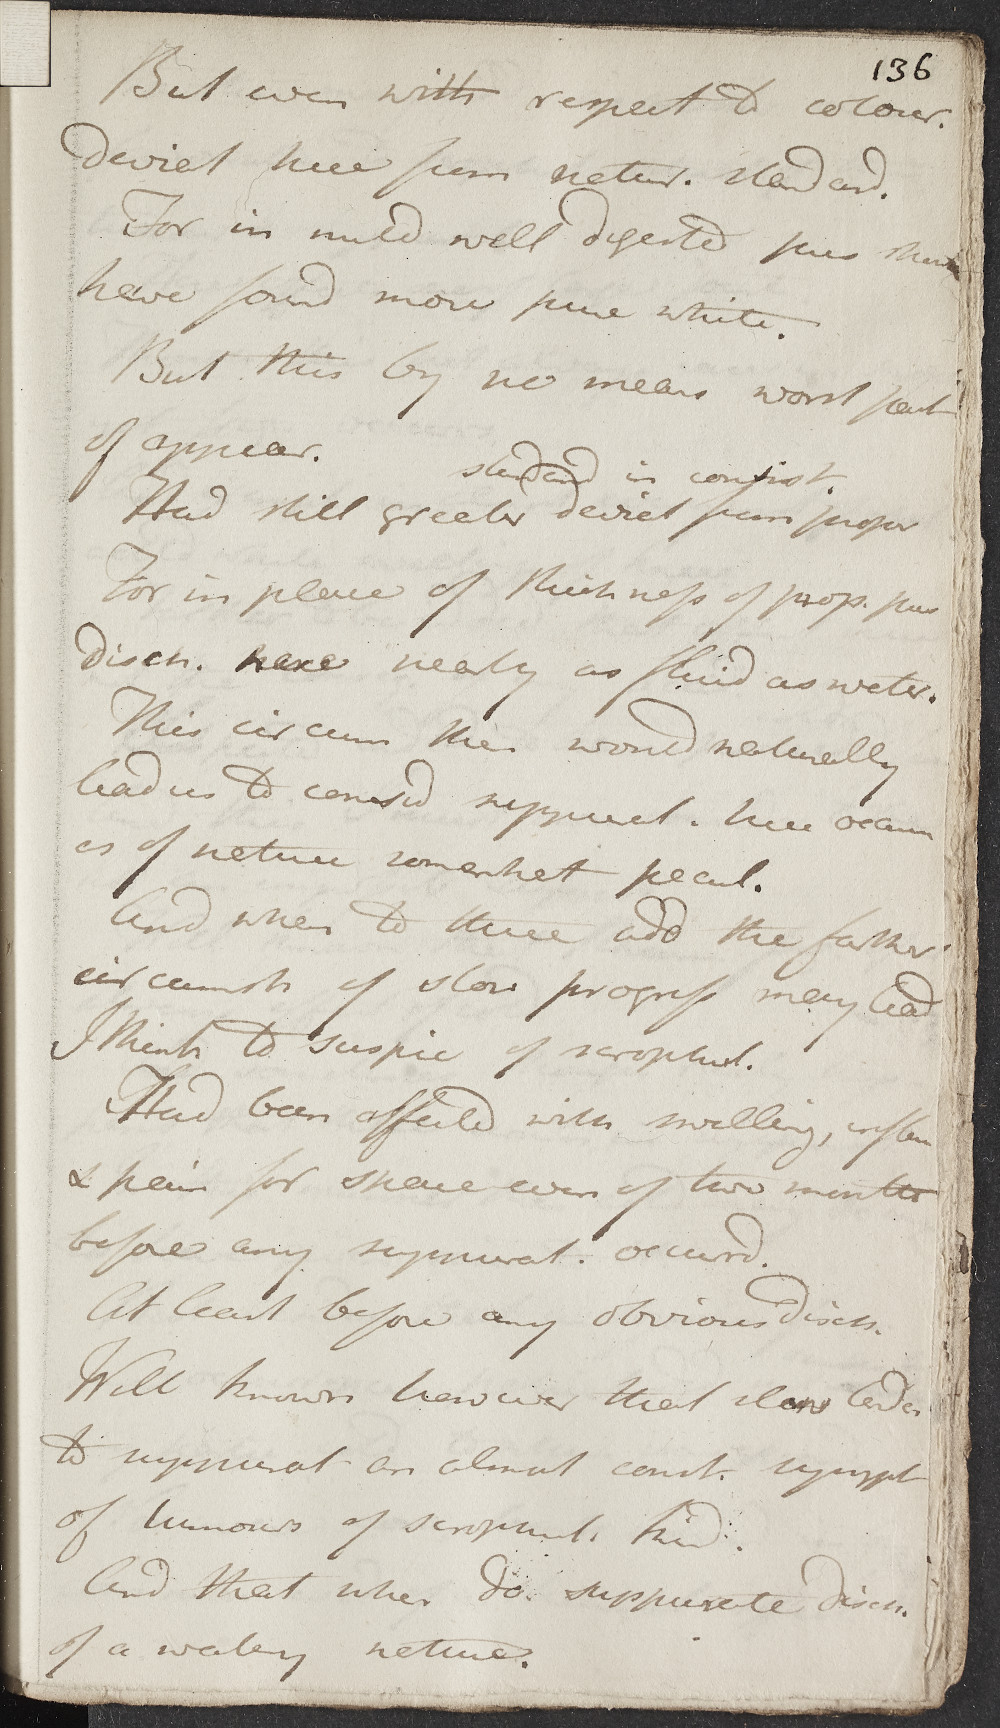 136
But even with respect to colour.
Deviat here from natur. standard.
For in mild well digested pus shou
have found more pure white.
But this by no means worst part
of appear.
standard in consist.
Had still greater deviat from proper
For in place of thickness of prop. pus
Disch. here nearly as fluid as water.
This circum then would naturally
lead us to consid suppurat. here occurr
as of nature somewhat pecul.
And when to these add the farther
circumst of slow progress may lead
I think to suspic of scrophul.
Had been affected with swelling, inflam
& pain for space even of two months
before any suppurat. occurrd.
At least before any obvious disch.
Well known however that slow tenden
to suppurat an almost const. sympt
of tumours of scrophul. kind.
And that when do suppurate disch.
of a watery nature.